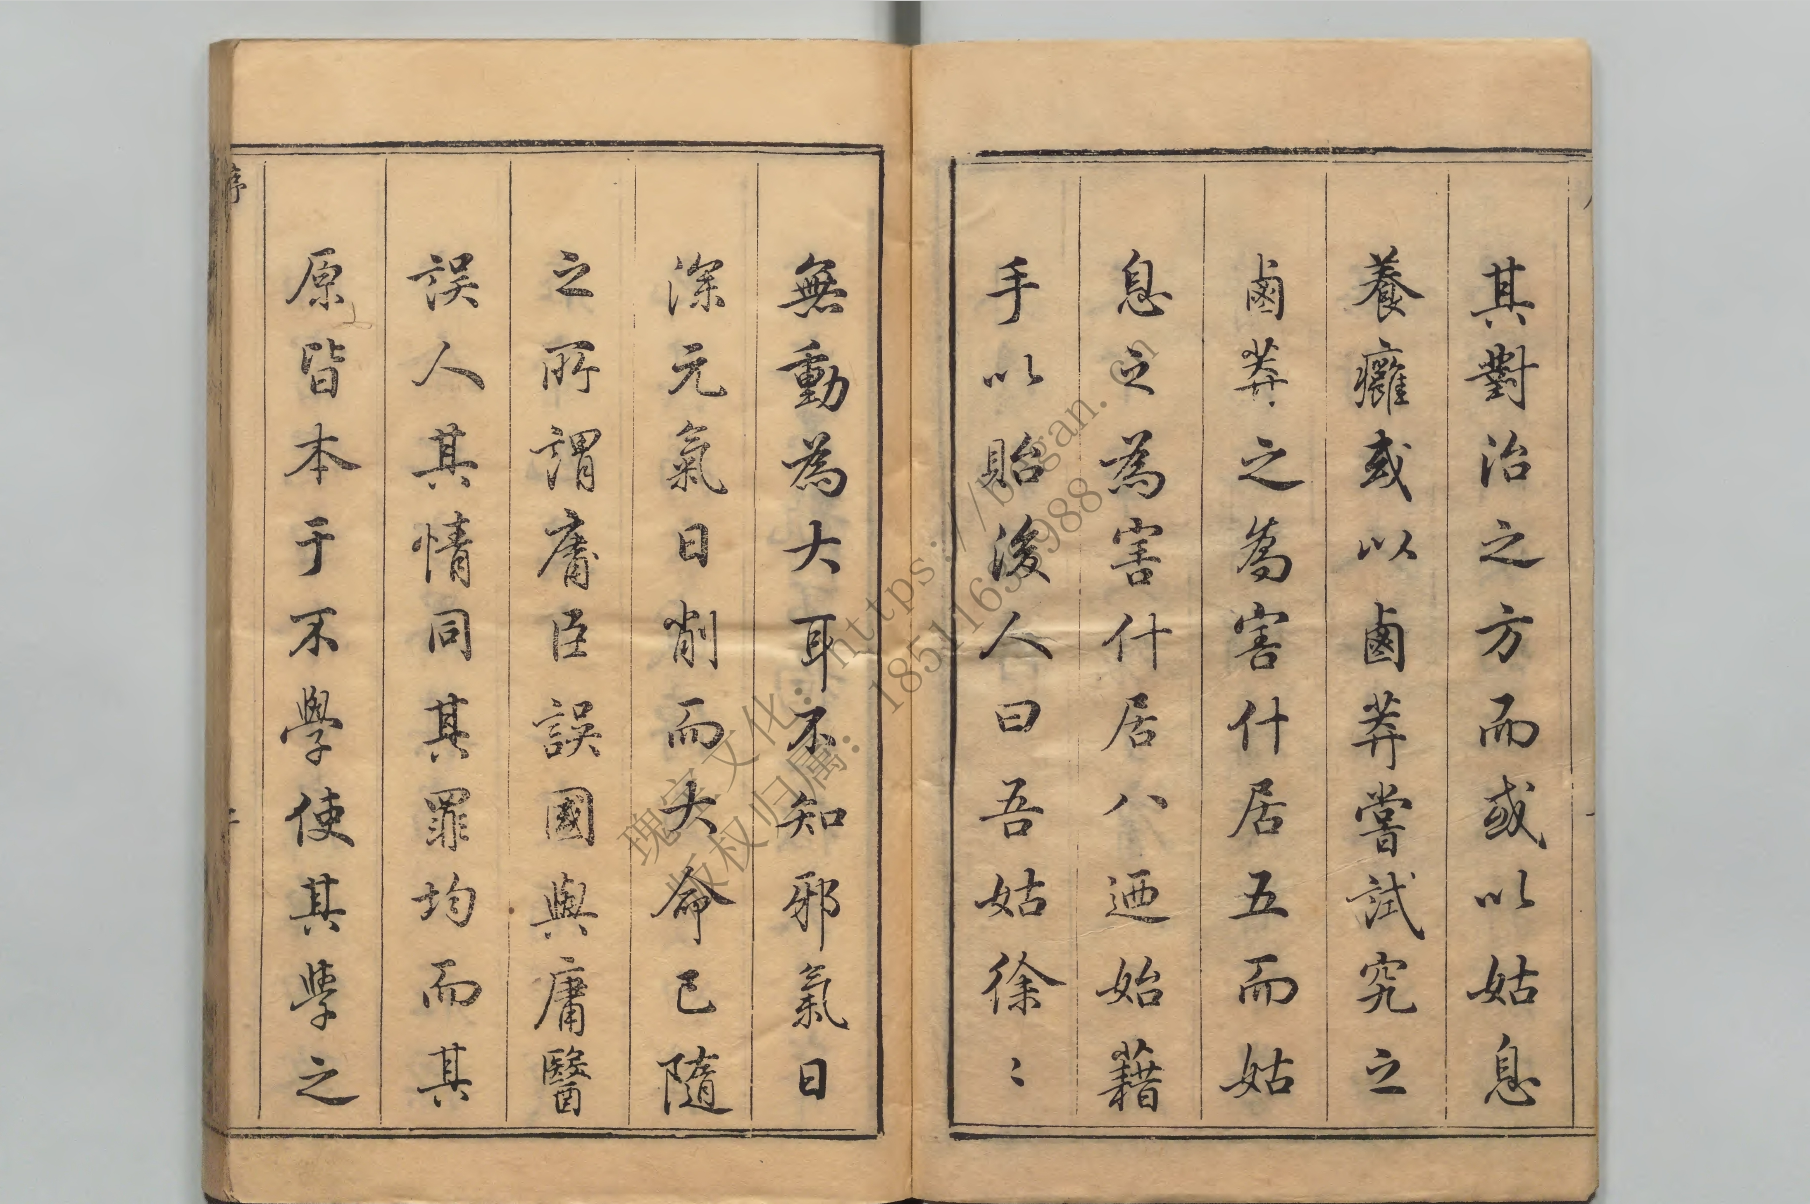 其對治之方而或以姑息
養癰或以鹵莽嘗試究之
鹵莽之為害什居五而姑
息之為害什居八迺始藉
手以貽後人曰吾姑徐〻
無動為大耳不知邪氣日
深元氣日削而大命已隨
之所謂庸臣誤國與庸醫
誤人其情同其罪均而其
原皆本于不學使其學之
序
瑰宝文化:https://bogan.cn
版权归属:18511653988